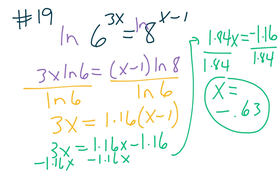 #19
ln 6^{3x} = ln 8^{x-1}
3x ln 6 = (x-1) ln 8
ln 6 ln 6
3x = 1.16(x-1)
3x = 1.16x - 1.16
-1.16x -1.16x
1.84x = -1.16
1.84 1.84
x =
-.63